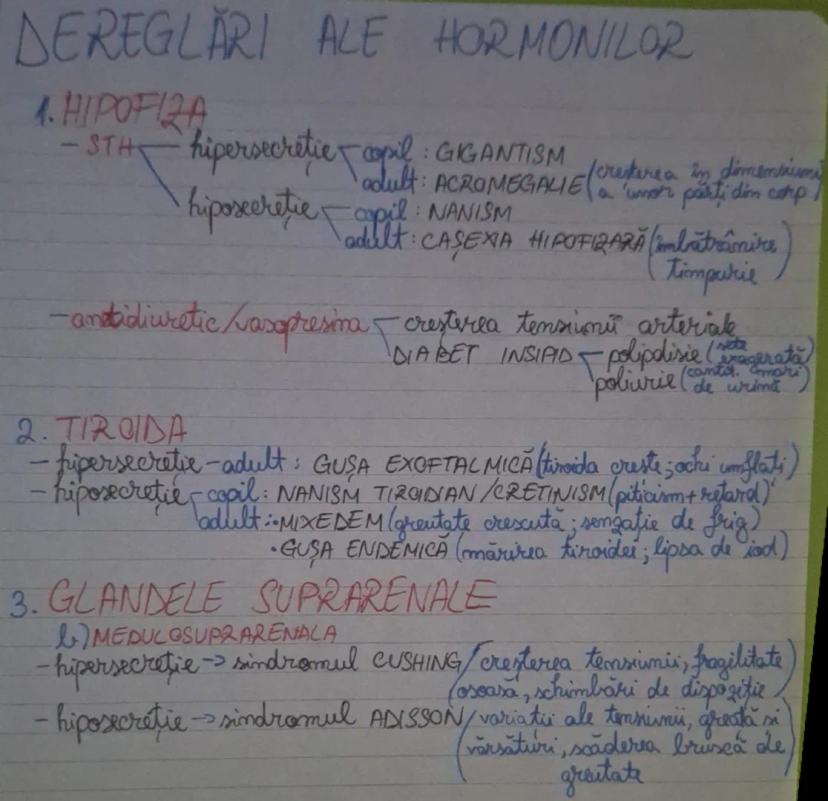 DEREGLĂRI ALE HORMONILOR
1. HIPOFIZA
- STH hipersecreție copil : GIGANTISM
adult : ACROMEGALIE (creșterea în dimensiuni
a unor părți din corp)
hiposecreție copil : NANISM
adult : CAȘEXIA HIPOFIZARĂ (îmbătrânire
timpurie)
- antidiuretic/vasopresina creșterea tensiunii arteriale
DIABET INSIPID polipdisie (sete
exagerată)
poliurie (cantit. mari
de urină)
2. TIROIDA
- hipersecreție - adult : GUȘA EXOFTALMICĂ (tiroida crește ; ochi umflați)
- hiposecreție copil : NANISM TIROIDIAN / CRETINISM (piticism + retard)
adult : • MIXEDEM (greutate crescută ; senzație de frig)
• GUȘA ENDEMICĂ (mărirea tiroidei ; lipsa de iod)
3. GLANDELE SUPRARENALE
b) MEDULOSUPRARENALA
- hipersecreție -> sindromul CUSHING (creșterea tensiunii, fragilitate
osoasă, schimbări de dispoziție)
- hiposecreție -> sindromul ADISSON (variații ale tensiunii, greață și
vărsături, scăderea bruscă de
greutate)